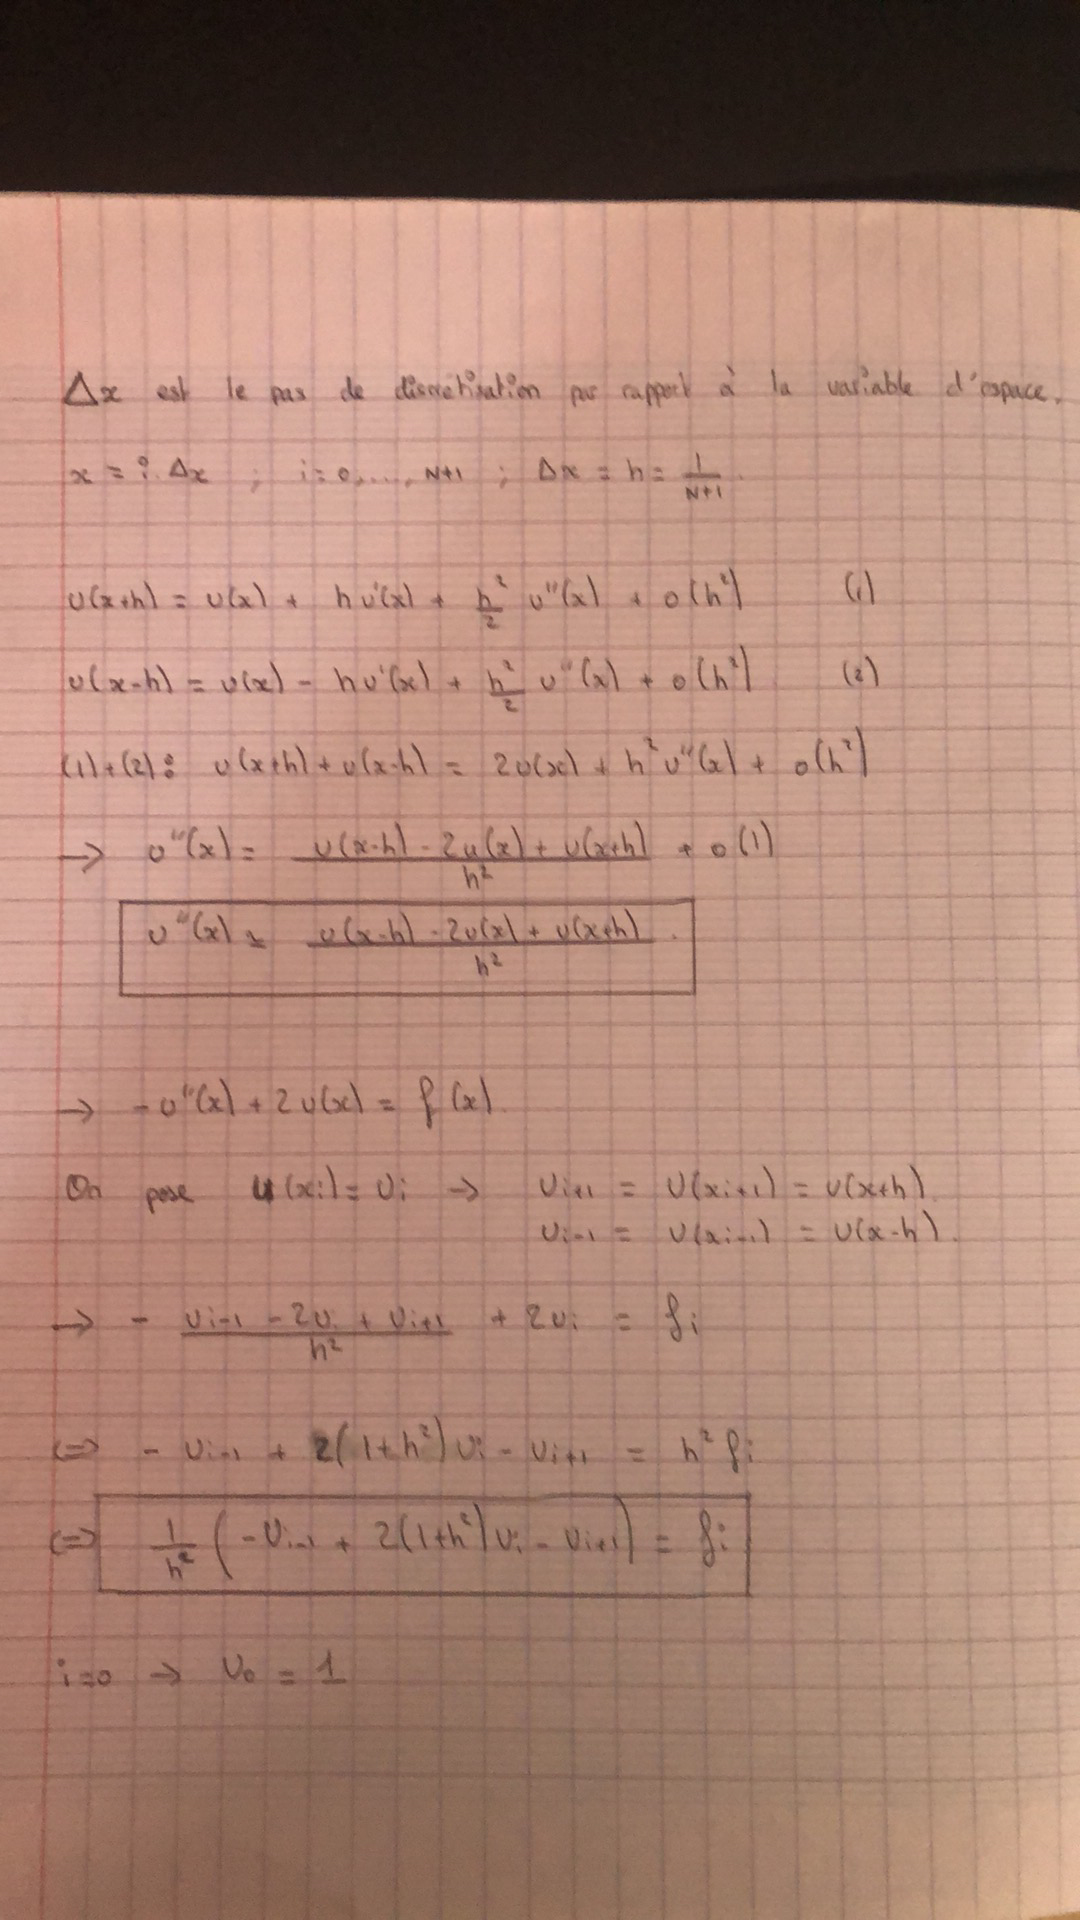 Δx est le pas de discrétisation par rapport à la variable d'espace.
x = i.Δx ; i=0,..., N+1 ; Δx = h = 1/(N+1)
u(x+h) = u(x) + hu'(x) + h²/2 u''(x) + o(h²) (1)
u(x-h) = u(x) - hu'(x) + h²/2 u''(x) + o(h²) (2)
(1)+(2): u(x+h)+u(x-h) = 2u(x) + h²u''(x) + o(h²)
→ u''(x) = (u(x-h) - 2u(x) + u(x+h))/h² + o(1)
u''(x) ≃ (u(x-h) - 2u(x) + u(x+h))/h².
→ -u''(x) + 2u(x) = f(x)
On pose u(xi) = ui → ui+1 = u(xi+1) = u(x+h).
ui-1 = u(xi-1) = u(x-h).
→ - (ui-1 - 2ui + ui+1)/h² + 2ui = fi
⇔ - ui-1 + 2(1+h²)ui - ui+1 = h² fi
⇔ 1/h² (-ui-1 + 2(1+h²)ui - ui+1) = fi
i=0 → u0 = 1